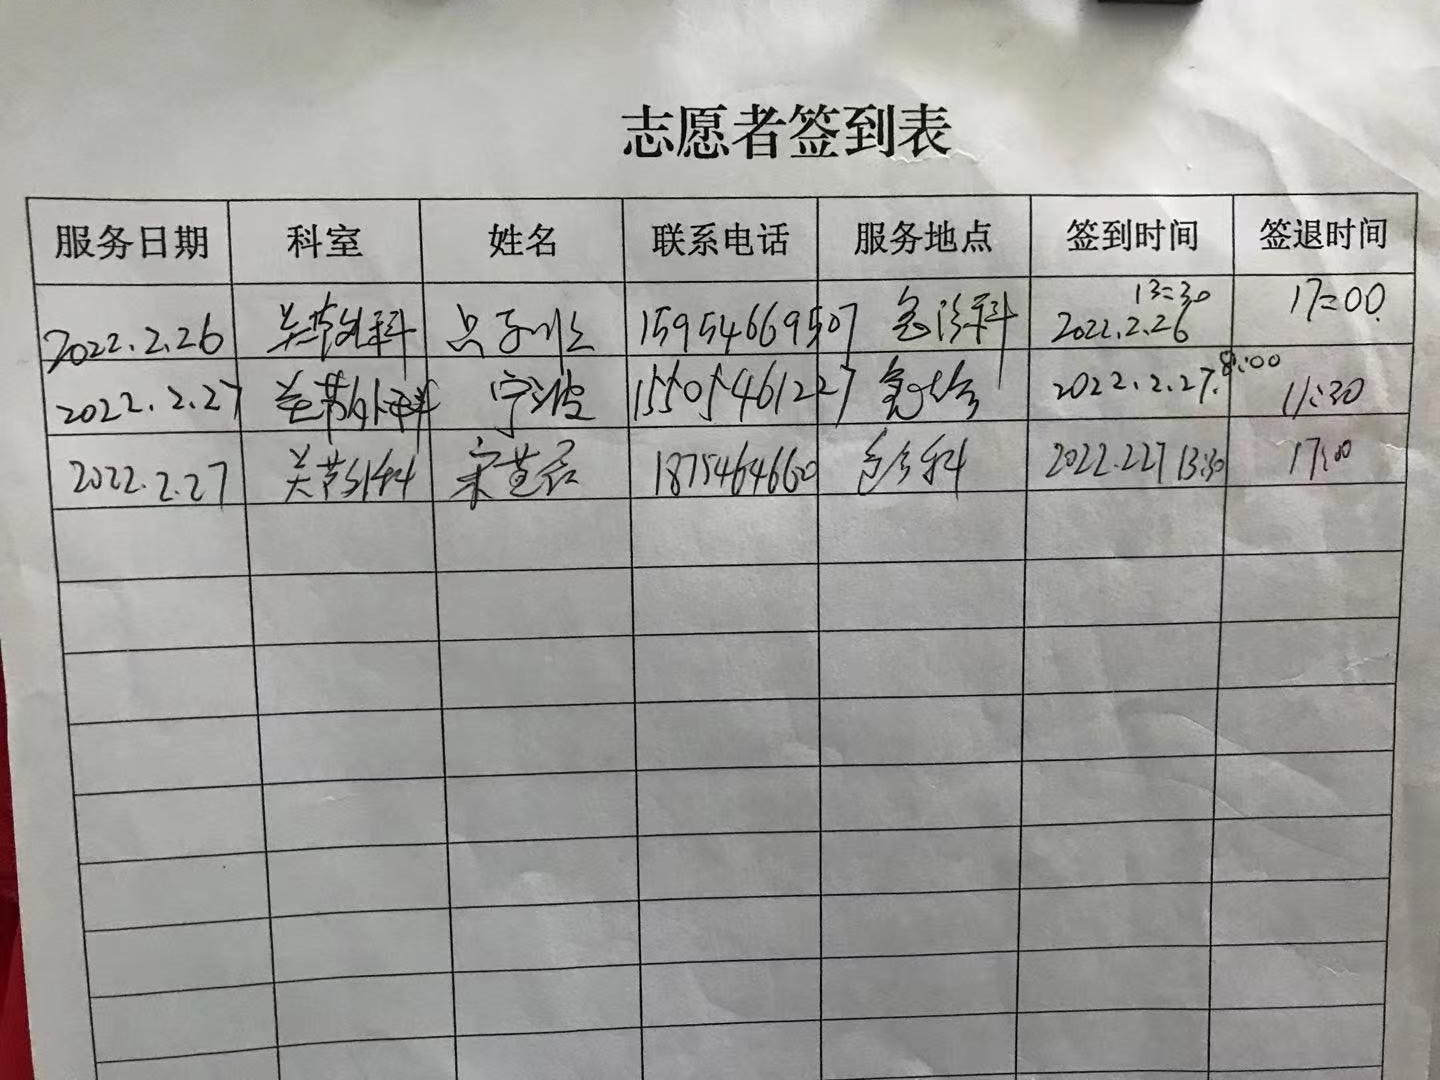 志愿者签到表
服务日期 科室 姓名 联系电话 服务地点 签到时间 签退时间
2022.2.26 关节外科 15954669507 急诊科 13:30 2022.2.26 17:00
2022.2.27 关节外科 宁波 15505461227 急诊 2022.2.27. 8:00 11:30
2022.2.27 关节外科 宋 18754646660 急诊科 2022.2.27 13:30 17:00